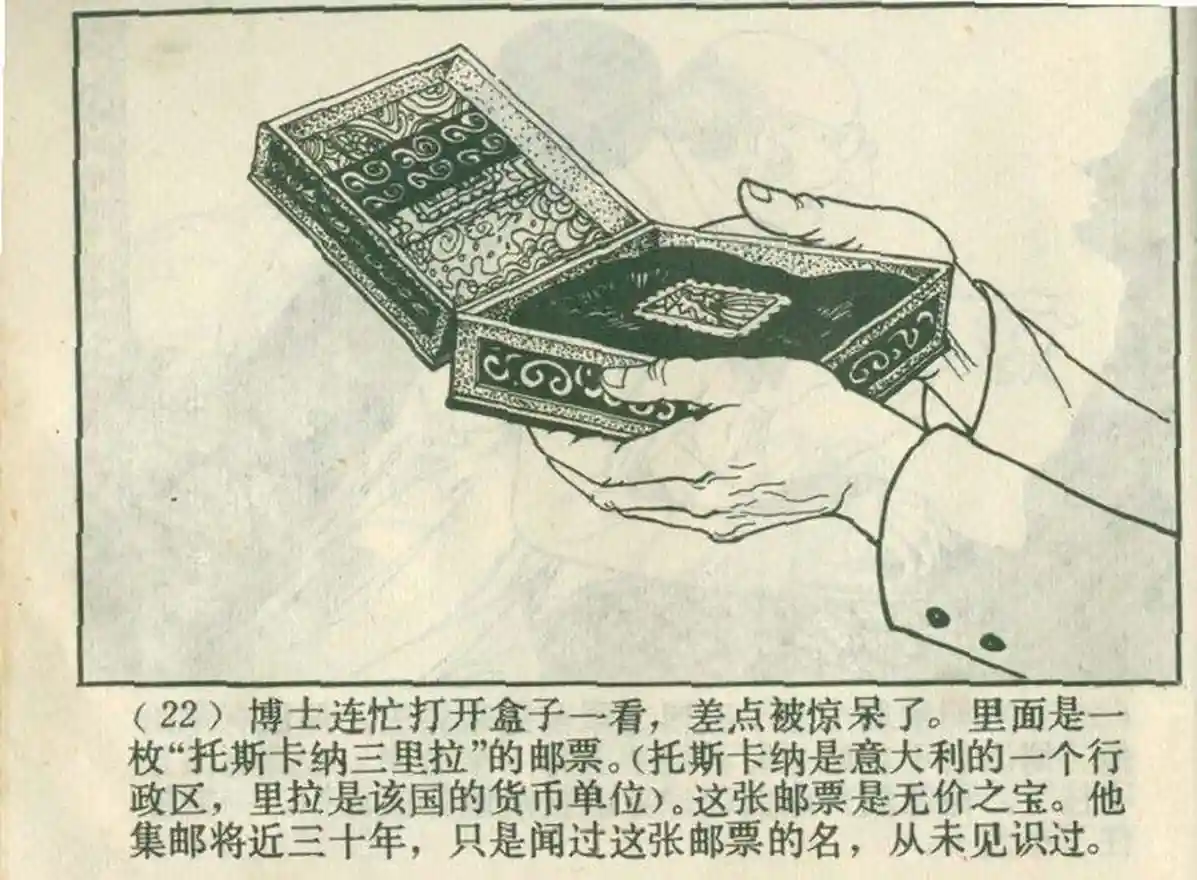 （22）博士连忙打开盒子一看，差点被惊呆了。里面是一
枚“托斯卡纳三里拉”的邮票。（托斯卡纳是意大利的一个行
政区，里拉是该国的货币单位）。这张邮票是无价之宝。他
集邮将近三十年，只是闻过这张邮票的名，从未见识过。